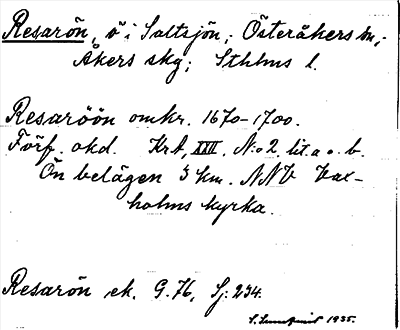 Resarön, ö i Saltsjön; Österåkers sn;
Åkers skg; Sthlms l.
Resaröön omkr. 1670-1700.
Förf. okd. Krt, XXII. N:o 2 lit. a o. b.
Ön belägen 3 km. NNV Vax-
holms kyrka.
Resarön ek. G. 76, Sj: 234.
S. 1935.